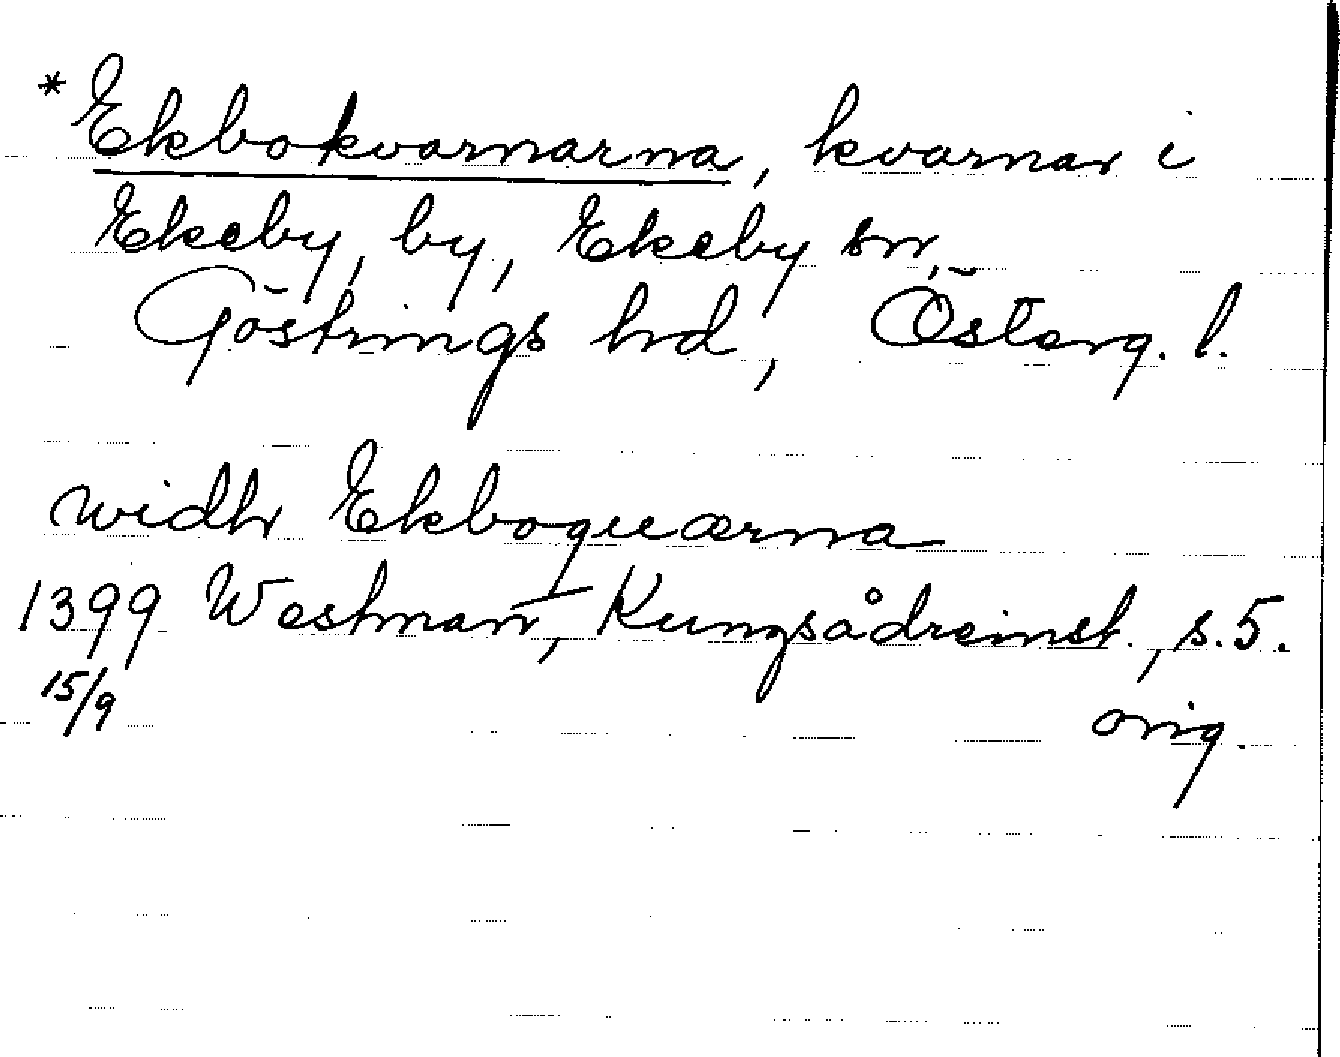 *Ekbokvarnarna, kvarnar i
Ekeby, by, Ekeby sn,
Göstrings hd, Österg. l.
widhr Ekboquærna
1399 Westman, Kungsådreinst., s. 5.
15/9 orig.